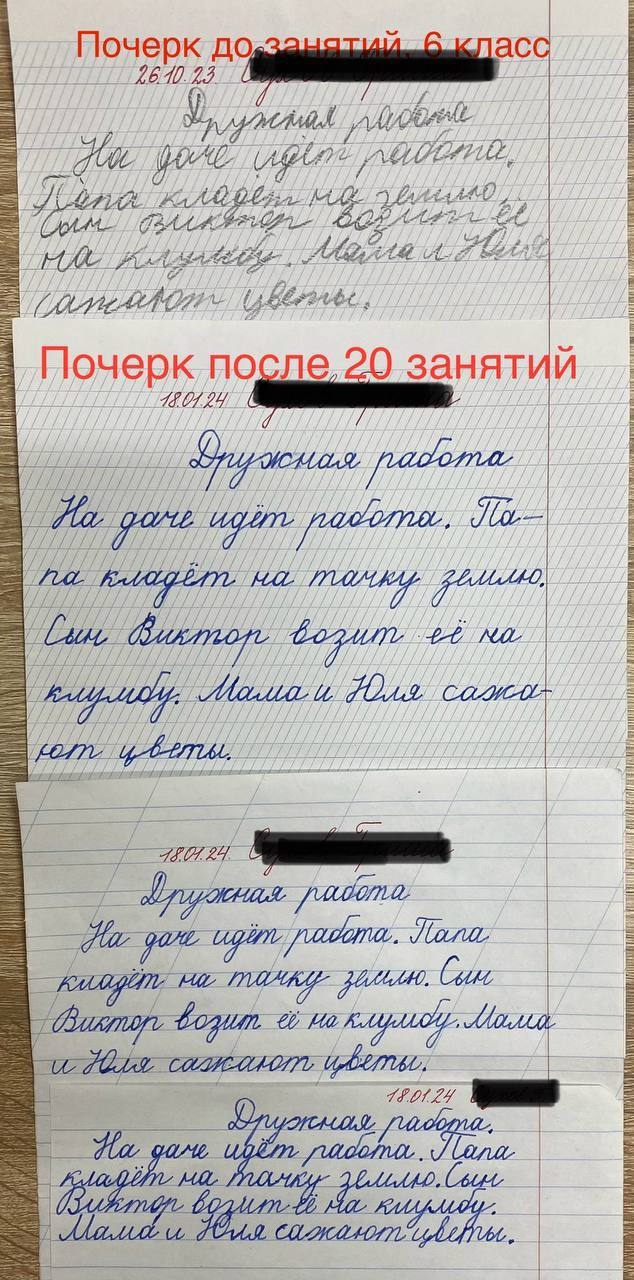 Почерк до занятий, 6 класс
26.10.23
Дружная работа
На даче идёт работа.
Папа кладёт на землю.
Сын Виктор возит её
на клумбу. Мама и Юля
сажают цветы.
Почерк после 20 занятий
18.01.24
Дружная работа
На даче идёт работа. Па-
па кладёт на тачку землю.
Сын Виктор возит её на
клумбу. Мама и Юля сажа-
ют цветы.
18.01.24
Дружная работа
На даче идёт работа. Папа
кладёт на тачку землю. Сын
Виктор возит её на клумбу. Мама
и Юля сажают цветы.
18.01.24
Дружная работа.
На даче идёт работа. Папа
кладёт на тачку землю. Сын
Виктор возит её на клумбу.
Мама и Юля сажают цветы.